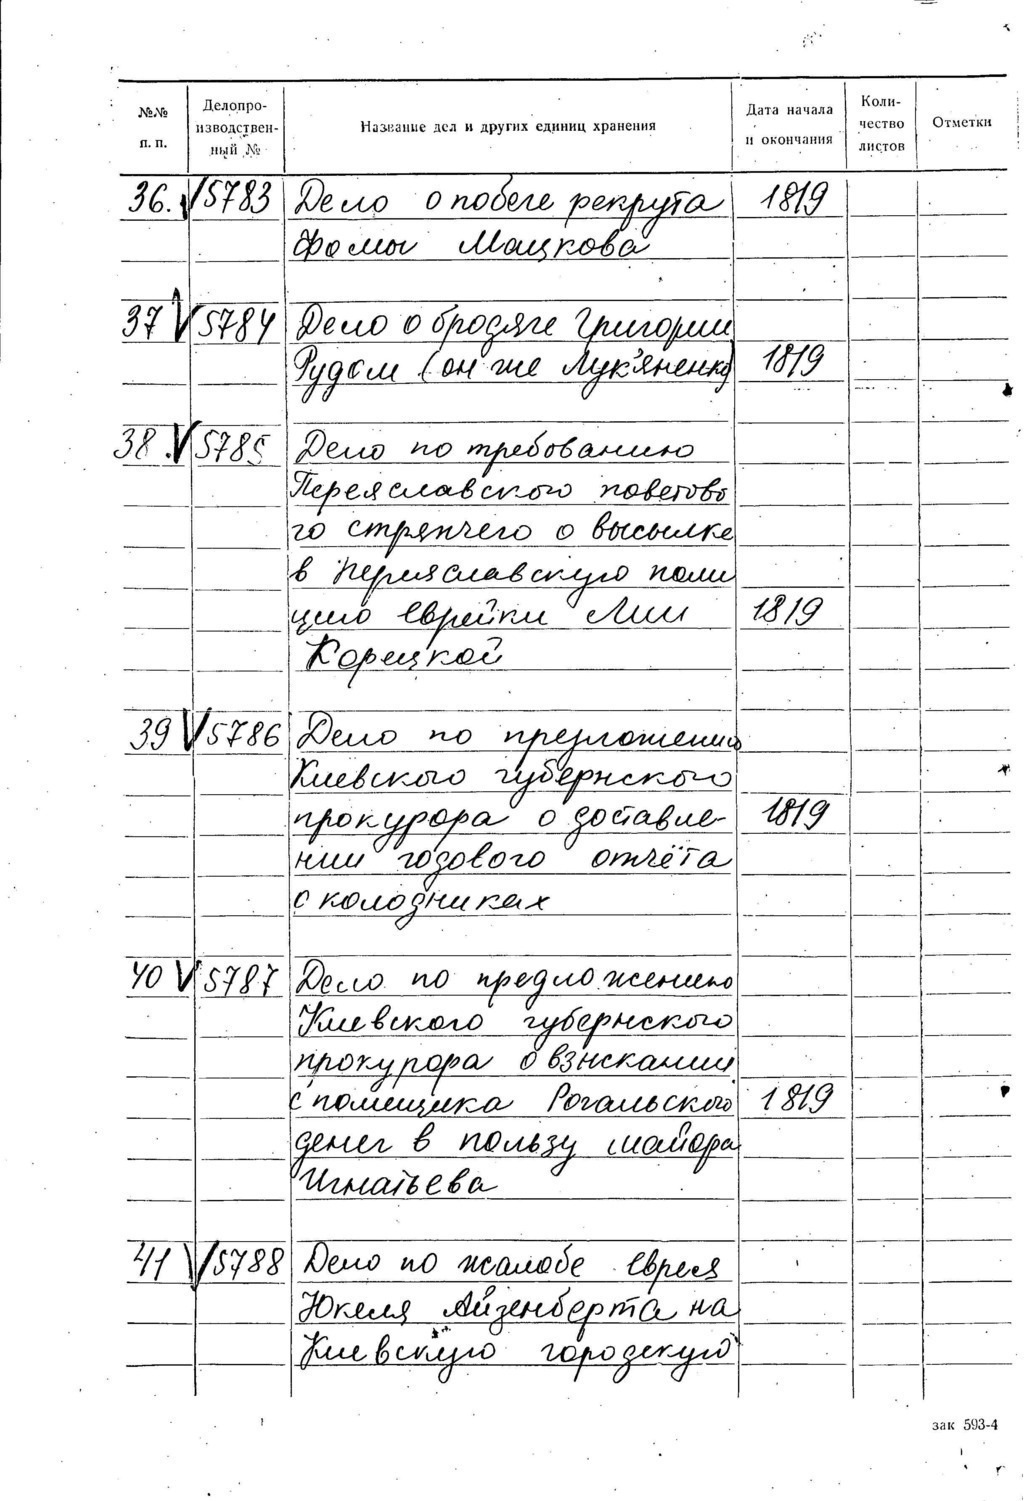 №№ п. п. Делопроизводственный № Название дел и других единиц хранения Дата начала и окончания Количество листов Отметки
36. 5783 Дело о побеге рекрута 1819
Фомы Мацкова
37 5784 Дело о бродяге Григории
Рудом (он же Лук'яненко) 1819
38. 5785 Дело по требованию
Переяславского поветово
го стряпчего о высылке
в Переяславскую поли
цию еврейки Лии 1819
Корецкой
39 5786 Дело по предложению
Киевского губернского
прокурора о доставле- 1819
нии годового отчёта
о колодниках
40 5787 Дело по предложению
Киевского губернского
прокурора о взыскании
с помещика Рогальского 1819
денег в пользу майора
Игнатьева
41 5788 Дело по жалобе еврея
Юкеля Айзенберта на
Киевскую городскую
зак 593-4